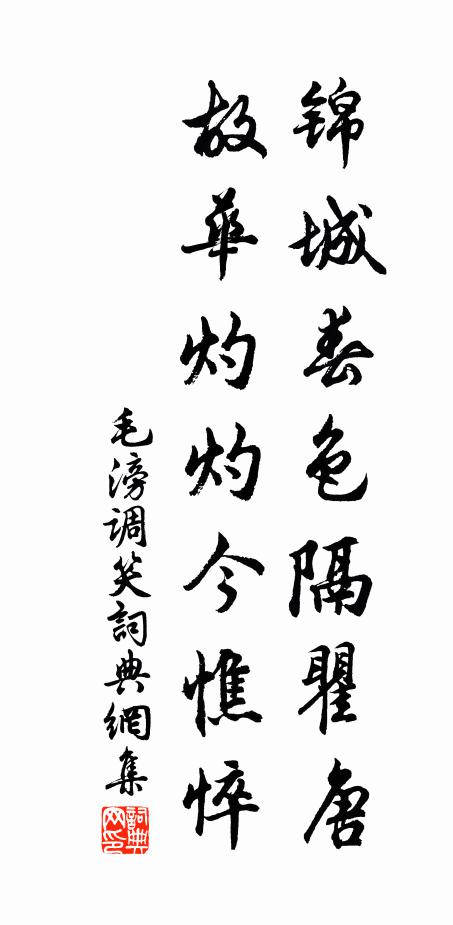 锦城春色隔瞿唐
故華灼灼今憔悴
毛滂调笑詞典網集
詞典网印